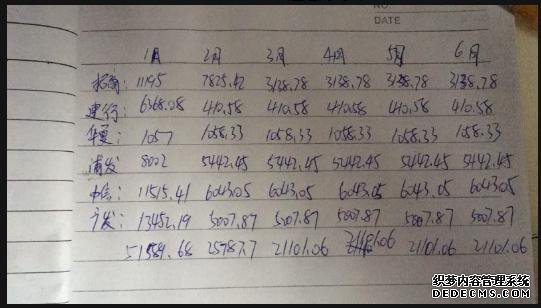 NO.
DATE
1月 2月 3月 4月 5月 6月
招商: 11195 7825.42 3138.78 3138.78 3138.78 3138.78
建行: 6368.08 410.58 410.58 410.58 410.58 410.58
华夏: 1057 1058.33 1058.33 1058.33 1058.33 1058.33
浦发: 8002 5442.45 5442.45 5442.45 5442.45 5442.45
中信: 11515.41 6043.05 6043.05 6043.05 6043.05 6043.05
广发: 13452.19 5007.87 5007.87 5007.87 5007.87 5007.87
51589.68 25787.7 21101.06 21101.06 21101.06 21101.06
织梦内容管理系统
DEDECMS.COM